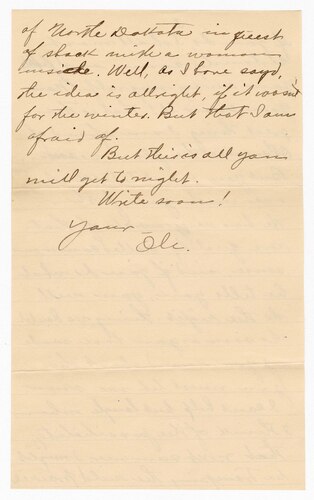 of North Dakota in quest
of shack with a woman
inside. Well, as I have sayd,
the idea is allright, if it wasn't
for the winter. But that I am
afraid of.
But this is all you
will get to night.
Write soon!
Your
Ole.